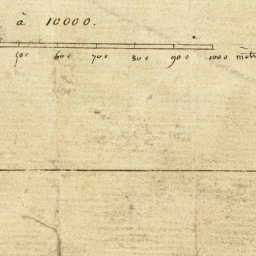 à 10000.
500 600 700 800 900 1000 mètr